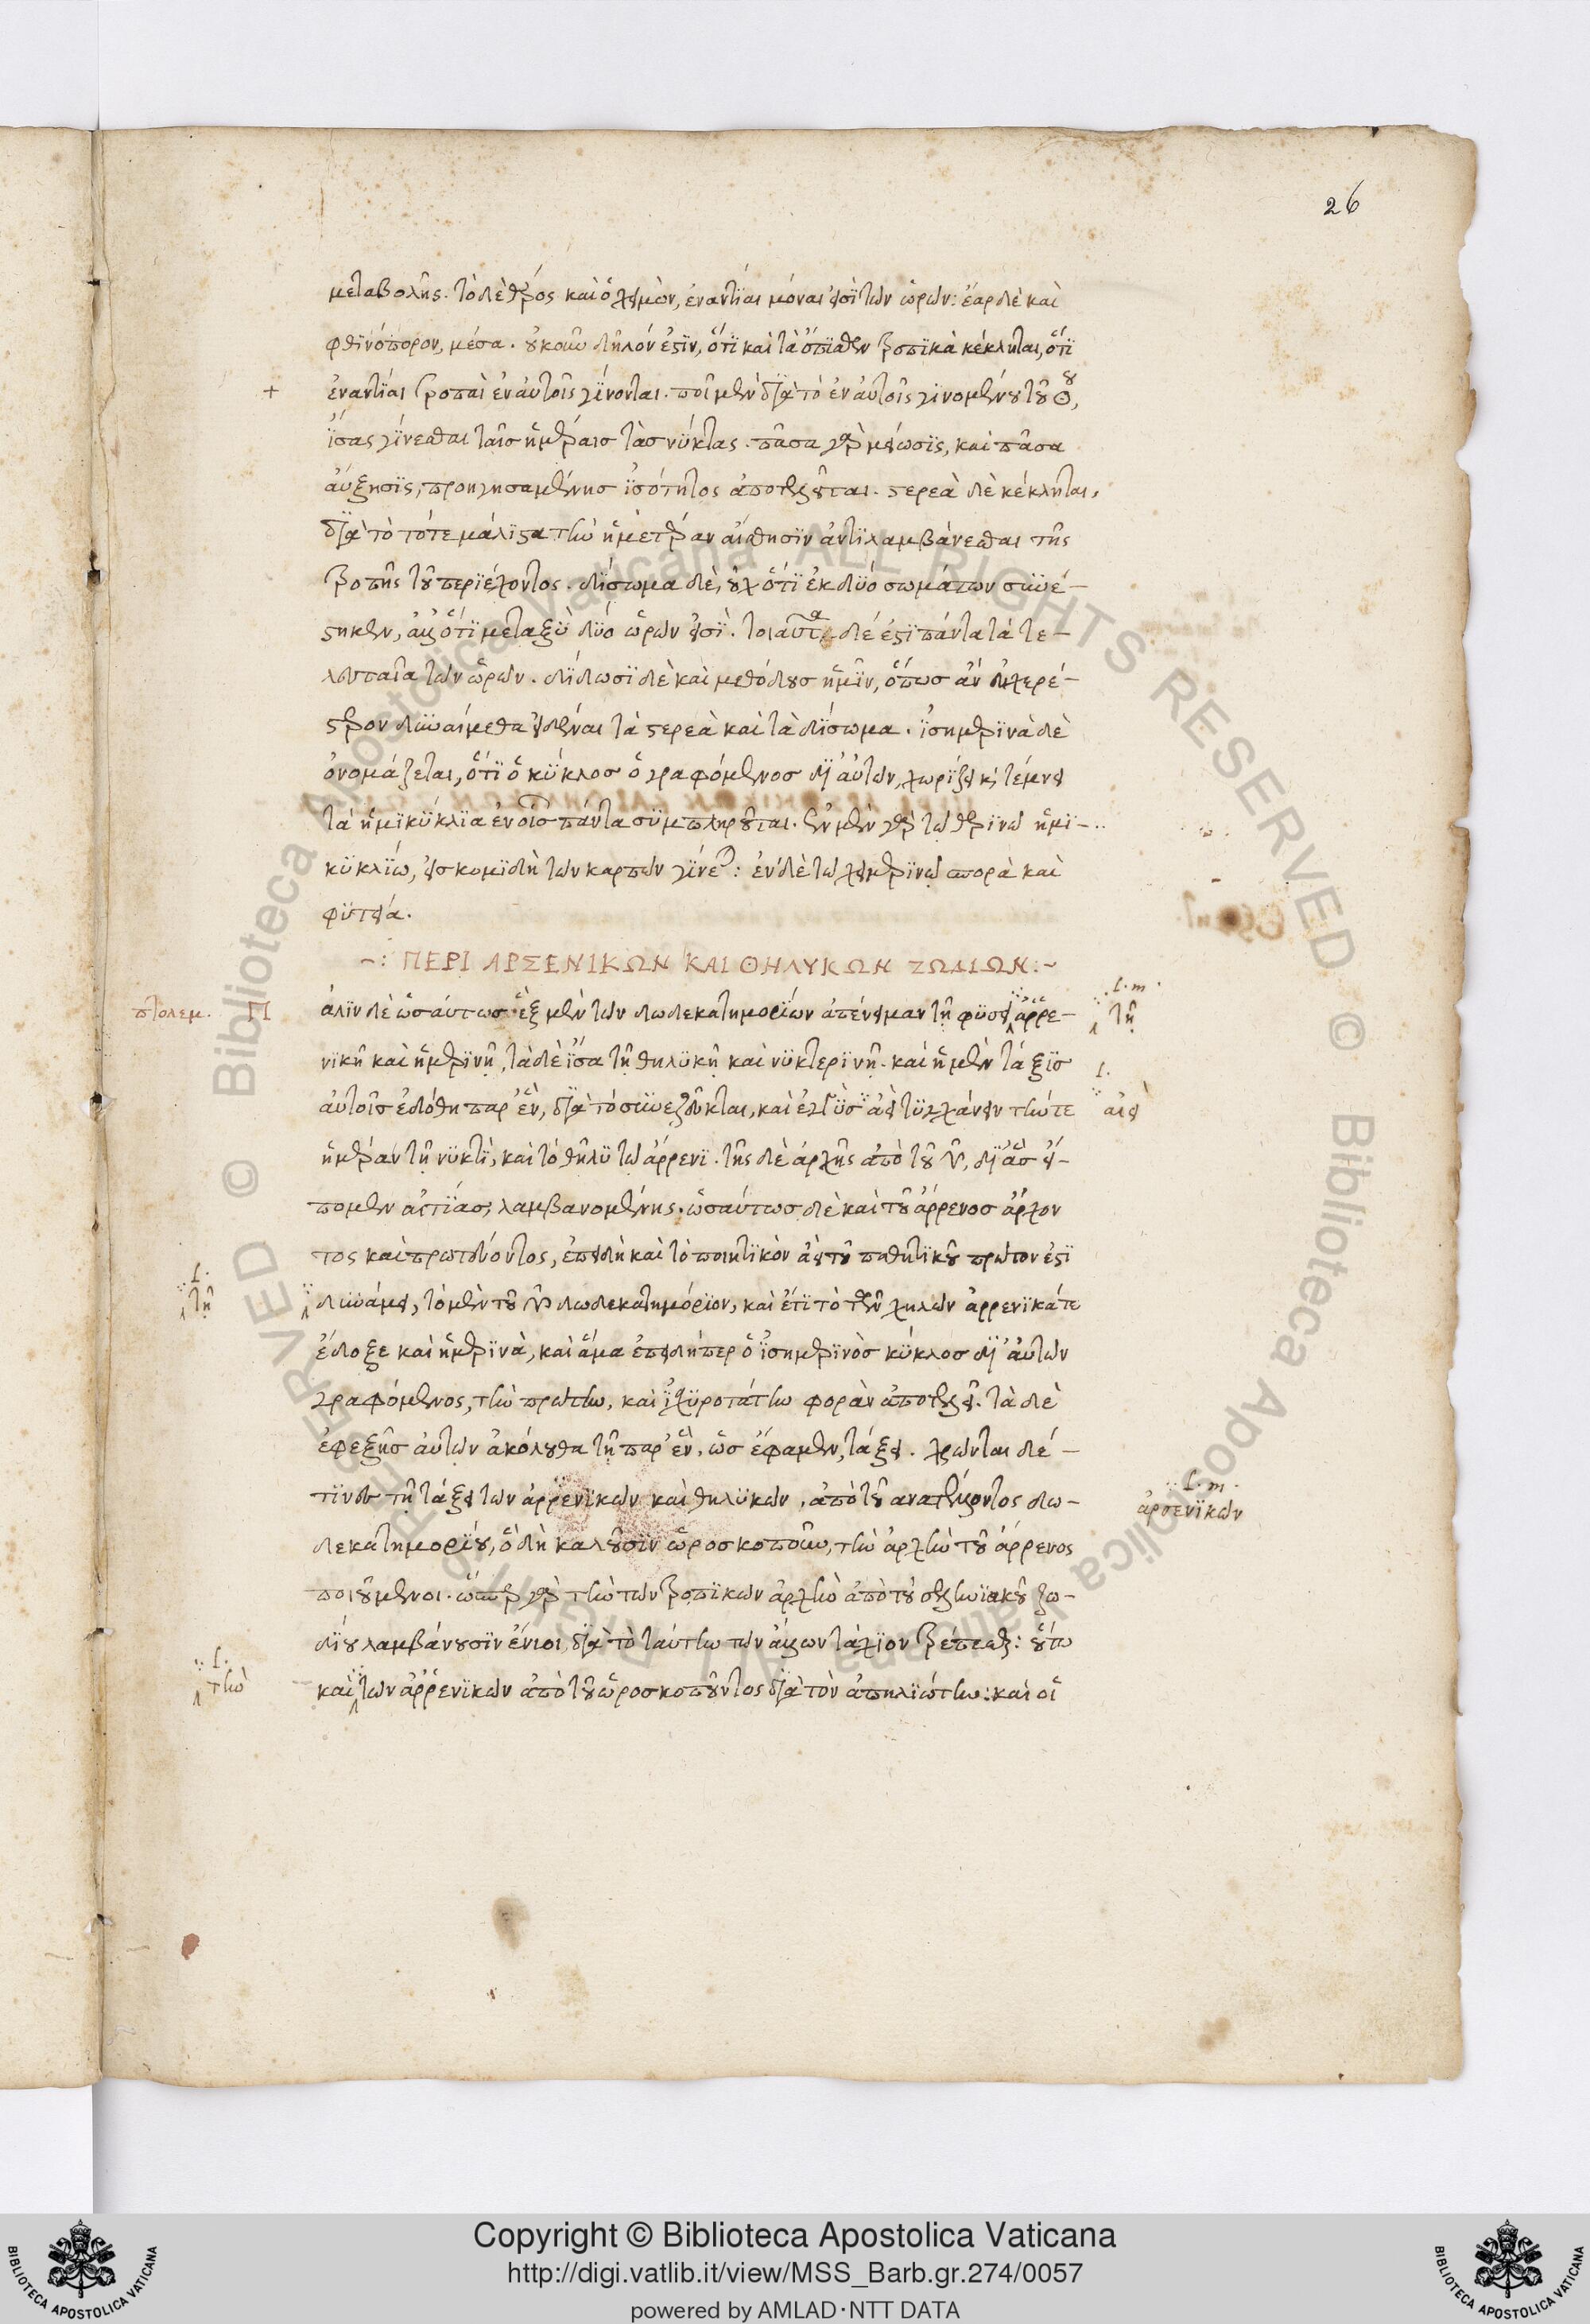 26
μεταβολῆς. τὸ δὲ θέρος καὶ ὁ χειμὼν, ἐναντίαι μόναι εἰσὶ τῶν ὡρῶν: ἔαρ δὲ καὶ
φθινόπορον, μέσα. οὐκοῦν δῆλόν ἐστιν, ὅτι καὶ τὰ ὄπισθεν τροπικὰ κέκληται, ὅτι
+ ἐναντίαι τροπαὶ ἐν αὐτοῖς γίνονται. ποῖ μὲν διὰ τὸ ἐν αὐτοῖς γινομένου τοῦ ☉ου,
ἴσας γίνεσθαι ταῖς ἡμέραις τὰς νύκτας. πᾶσα γὰρ μείωσις, καὶ πᾶσα
αὔξησις, προηγησαμένης ἰσότητος ἀποτελεῖται. στερεὰ δὲ κέκληται,
διὰ τὸ τότε μάλιστα τὴν ἡμετέραν αἴσθησιν ἀντιλαμβάνεσθαι τῆς
τροπῆς τοῦ περιέχοντος. δίσωμα δὲ, οὐχ ὅτι ἐκ δύο σωμάτων συνέ-
στηκεν, ἀλλ' ὅτι μεταξὺ δύο ὡρῶν εἰσὶ. τοιαῦτα δέ ἐστι πάντα τὰ τε-
λευταῖα τῶν ὡρῶν. δίδωσι δὲ καὶ μεθόδους ἡμῖν, ὅπως ἂν εὐχερέ-
στερον δυναίμεθα εἰδέναι τὰ στερεὰ καὶ τὰ δίσωμα. ἰσημερινὰ δὲ
ὀνομάζεται, ὅτι ὁ κύκλος ὁ γραφόμενος δι' αὐτῶν, χωρίζει καὶ τέμνει
τὰ ἡμικύκλια ἐν οἷς πάντα συμπληροῦται. ἐν μὲν γὰρ τῷ θερινῷ ἡμι-
κυκλίῳ, εἰσκομιδὴ τῶν καρπῶν γίνεται: ἐν δὲ τῷ χειμερινῷ σπορὰ καὶ
φυτεία.
-: ΠΕΡΙ ΑΡΣΕΝΙΚΩΝ ΚΑΙ ΘΗΛΥΚΩΝ ΖΩΔΙΩΝ:~
πτολεμ. Π άλιν δὲ ὡσαύτως ἓξ μὲν τῶν δωδεκατημορίων ἀπένειμαν τῇ φύσει ἀρρε- l. m. τῇ
νικῇ καὶ ἡμερινῇ, τὰ δὲ ἴσα τῇ θηλυκῇ καὶ νυκτερινῇ. καὶ ἡ μὲν τάξις
αὐτοῖς ἐδόθη παρ' ἓν, διὰ τὸ συνεζεῦχθαι, καὶ ἐγγὺς ἀεὶ τυγχάνειν τήν τε l. αἰεὶ
ἡμέραν τῇ νυκτὶ, καὶ τὸ θῆλυ τῷ ἄρρενι. τῆς δὲ ἀρχῆς ἀπὸ τοῦ ♈, δι' ἃς εἴ-
πομεν αἰτίας, λαμβανομένης. ὡσαύτως δὲ καὶ τοῦ ἄρρενος ἄρχον
τος καὶ πρωτεύοντος, ἐπειδὴ καὶ τὸ ποιητικὸν ἀεὶ τοῦ παθητικοῦ πρῶτον ἐστὶ
l. τῇ δυνάμει, τὸ μὲν τοῦ ♈ δωδεκατημόριον, καὶ ἔτι τὸ τῶν χηλῶν ἀρρενικά τε
ἔδοξε καὶ ἡμερινὰ, καὶ ἅμα ἐπειδήπερ ὁ ἰσημερινὸς κύκλος δι' αὐτῶν
γραφόμενος, τὴν πρώτην, καὶ ἰσχυροτάτην φορὰν ἀποτελεῖ. τὰ δὲ
ἐφεξῆς αὐτῶν ἀκόλουθα τῇ παρ' ἓν, ὡς ἔφαμεν, τάξει. χρῶνται δέ-
τινες τῇ τάξει τῶν ἀρρενικῶν καὶ θηλυκῶν, ἀπὸ τοῦ ἀνατέλλοντος δω- l. m. ἀρσενικῶν
δεκατημορίου, ὃ δὴ καλοῦσιν ὡροσκοποῦν, τὴν ἀρχὴν τοῦ ἄρρενος
ποιούμενοι. ὥσπερ γὰρ τὴν τῶν τροπικῶν ἀρχὴν ἀπὸ τοῦ σεληνιακοῦ ζω-
δίου λαμβάνουσιν ἔνιοι, διὰ τὸ ταύτην τῶν ἄλλων τάχιον τρέπεσθαι: οὕτω
l. τὴν καὶ τῶν ἀρρενικῶν ἀπὸ τοῦ ὡροσκοποῦντος διὰ τὸν ἀπηλιώτην: καὶ οἱ
Copyright © Biblioteca Apostolica Vaticana
http://digi.vatlib.it/view/MSS_Barb.gr.274/0057
powered by AMLAD·NTT DATA